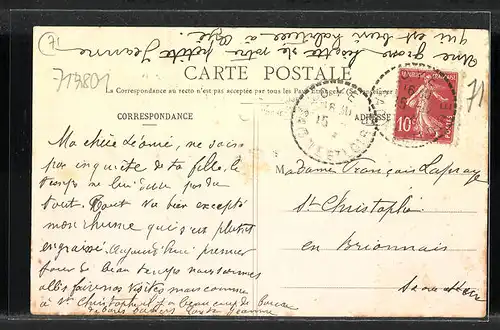 71
une grosse bicotte de votre petite Jeanne
qui est bien habituée à
713801
CARTE POSTALE
La Correspondance au recto n'est pas acceptée par tous les Pays Étrangers
71
RÉPUBLIQUE FRANÇAISE
10c
POSTES
15
CORRESPONDANCE
ADRESSE
Ma chère Léonie, ne sois
pas inquiète de ta fille, le
temps ne lui dure pas du
tout. Tout va bien excepté
mon rhume qui s'est plutôt
engraissé. Aujourd'hui premier
jour de beau temps nous sommes
allés faire nos visites mais comme
à St Christophe il y a beaucoup de
Jeanne
Madame François Lapraye
St Christophe
en Brionnais
Saône et Loire